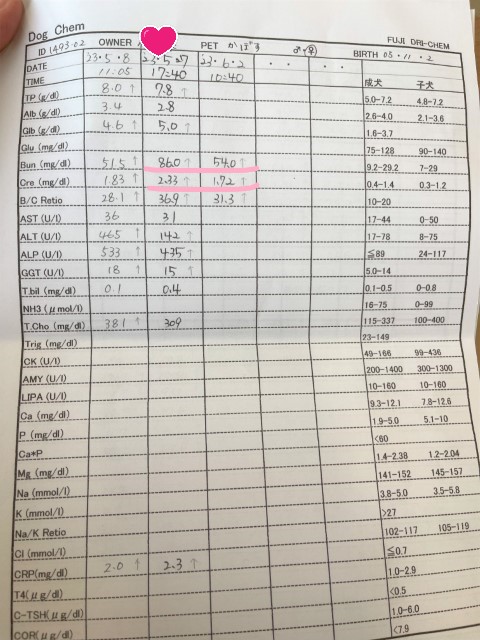 Dog Chem
FUJI DRI-CHEM
ID 1493-02 OWNER PET かぼす ♂・♀ BIRTH 05・11・2
DATE 23・5・8 23・5・27 23・6・2 ・ ・ ・ ・ ・ ・
TIME 11:05 17:40 10:40 成犬 子犬
TP (g/dl) 8.0↑ 7.8↑ 5.0-7.2 4.8-7.2
Alb (g/dl) 3.4 2.8 2.6-4.0 2.1-3.6
Glb (g/dl) 4.6↑ 5.0↑ 1.6-3.7
Glu (mg/dl) 75-128 90-140
Bun (mg/dl) 51.5↑ 86.0↑ 54.0↑ 9.2-29.2 7-29
Cre (mg/dl) 1.83↑ 2.33↑ 1.72↑ 0.4-1.4 0.3-1.2
B/C Ratio 28.1↑ 36.9↑ 31.3↑ 10-20
AST (U/l) 36 31 17-44 0-50
ALT (U/l) 465↑ 142↑ 17-78 8-75
ALP (U/l) 533↑ 435↑ ≦89 24-117
GGT (U/l) 18↑ 15↑ 5.0-14
T.bil (mg/dl) 0.1 0.4 0.1-0.5 0-0.8
NH3 (μmol/l) 16-75 0-99
T.Cho (mg/dl) 381↑ 309 115-337 100-400
Trig (mg/dl) 23-149
CK (U/l) 49-166 99-436
AMY (U/l) 200-1400 300-1300
LIPA (U/l) 10-160 10-160
Ca (mg/dl) 9.3-12.1 7.8-12.6
P (mg/dl) 1.9-5.0 5.1-10
Ca*P <60
Mg (mg/dl) 1.4-2.38 1.2-2.04
Na (mmol/l) 141-152 145-157
K (mmol/l) 3.8-5.0 3.5-5.8
Na/K Ratio >27
Cl (mmol/l) 102-117 105-119
CRP(mg/dl) 2.0↑ 2.3↑ ≦0.7
T4(μg/dl) 1.0-2.9
C-TSH(μg/dl) <0.5
COR(μg/dl) 1.0-6.0
<7.9